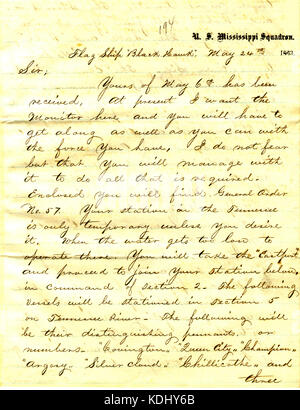 194
U. S. Mississippi Squadron.
Flag Ship "Black Hawk". May 24th 1863.
Sir;
Yours of May 6th has been
received, At present I want the
Monitor here, and you will have to
get along as well as you can with
the force you have, I do not fear
but that you will manage with
it to do all that is required.
Enclosed you will find General Order
No. 57. Your station in the Tennessee
is only temporary unless you desire
it. When the water gets too low to
operate there You will take the "Eastport"
and proceed to join Your Station below
in command of Section 2. The following
vessels will be stationed in Section 5
on Tennessee River. The following will
be their distinguishing pennants, or
numbers. "Covington" "Queen City" "Champion"
"Argosy" "Silver Cloud" "Chillicothe" and
three
alamy
KDHY6B